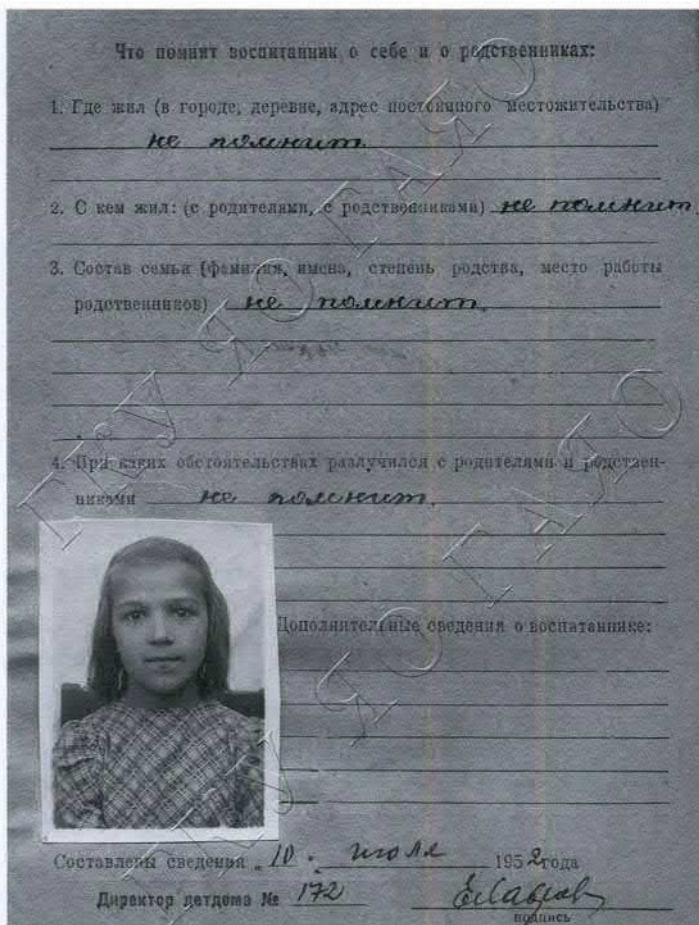 Что помнит воспитанник о себе и о родственниках:
1. Где жил (в городе, деревне, адрес постоянного местожительства)
не помнит
2. С кем жил: (с родителями, с родственниками) не помнит
3. Состав семьи (фамилия, имена, степень родства, место работы
родственников) не помнит.
4. При каких обстоятельствах разлучился с родителями и родствен-
никами не помнит.
Дополнительные сведения о воспитаннике:
Составлены сведения „10" июля 1952 года
Директор детдома № 172
подпись
ГКУ ЯО ГАЯО
ГКУ ЯО ГАЯО